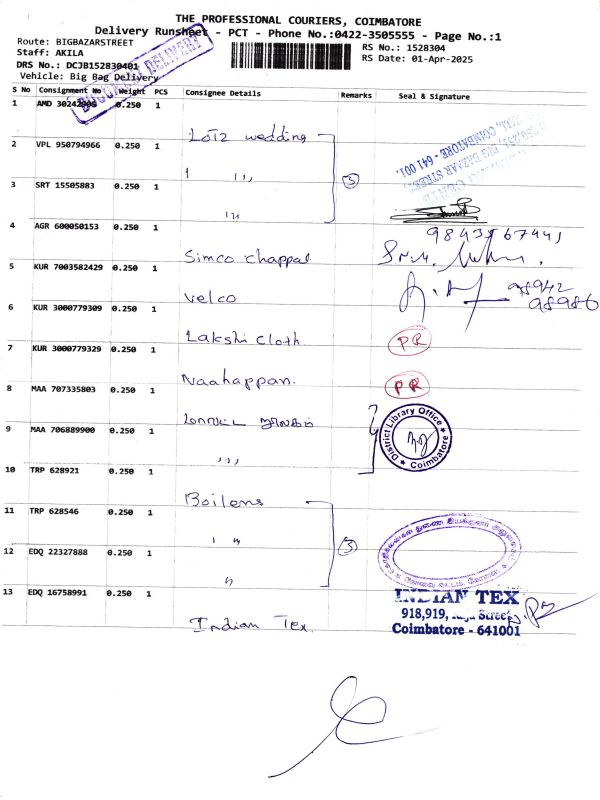 THE PROFESSIONAL COURIERS, COIMBATORE
Delivery Runsheet - PCT - Phone No.:0422-3505555 - Page No.:1
Route: BIGBAZARSTREET
RS No.: 1528304
Staff: AKILA
RS Date: 01-Apr-2025
DRS No.: DCJB152830401
Vehicle: Big Bag Delivery
S No Consignment No Weight PCS Consignee Details Remarks Seal & Signature
1 AMD 30242905 0.250 1 Lotz wedding
2 VPL 950794966 0.250 1 1 ,,,
COIMBATORE - 641 001.
3 SRT 15505883 0.250 1 ,,, 3
4 AGR 600050153 0.250 1 Simco chappal
5 KUR 7003582429 0.250 1 Velco
98942
98986
6 KUR 3000779309 0.250 1 Lakshi cloth PR
7 KUR 3000779329 0.250 1 Naahappan. PR
8 MAA 707335803 0.250 1
District Library Office
Coimbatore
9 MAA 706889900 0.250 1 ,,,
10 TRP 628921 0.250 1 Boilens
11 TRP 628546 0.250 1 ,,
3
12 EDQ 22327888 0.250 1 ,,
13 EDQ 16758991 0.250 1 Indian Tex.
INDIAN TEX
918,919, Raja Street,
Coimbatore - 641001